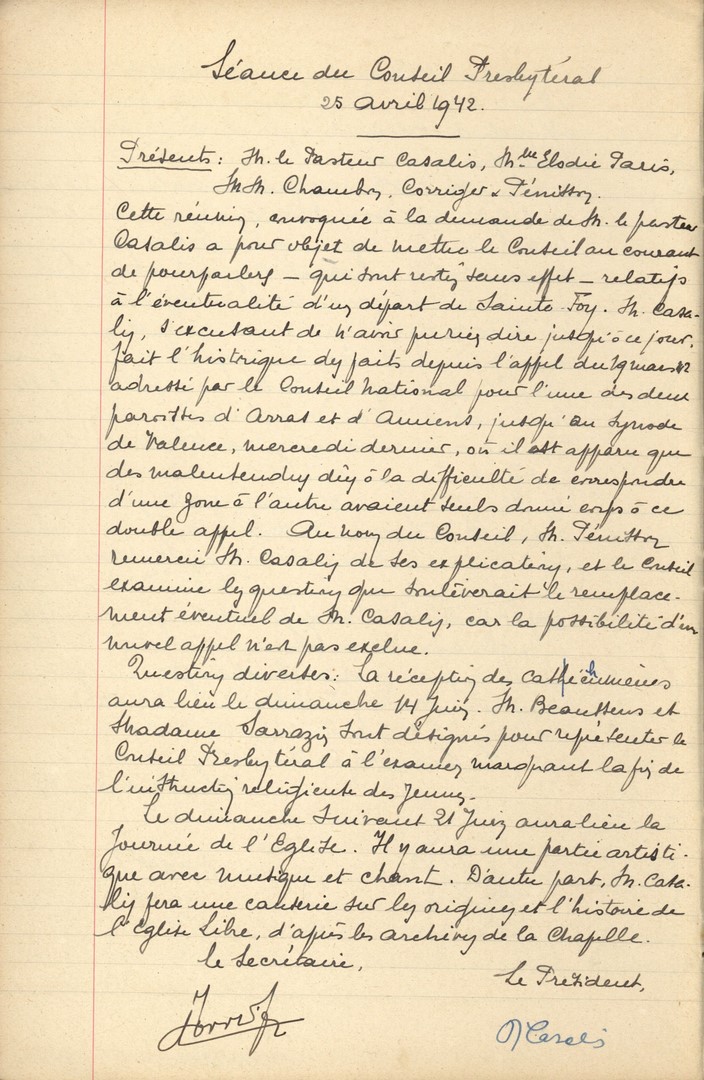 Séance du Conseil Presbytéral
25 avril 1942.
Présents : M. le Pasteur Casalis, Mlle Elodie Paris,
MM. Chambon, Corriger & Pénisson.
Cette réunion, convoquée à la demande de M. le pasteur
Casalis a pour objet de mettre le Conseil au courant
de pourparlers — qui sont restés sans effet — relatifs
à l'éventualité d'un départ de Sainte-Foy. M. Casa-
lis, s'excusant de n'avoir pu rien dire jusqu'à ce jour,
fait l'historique des faits depuis l'appel du 19 mars 42
adressé par le Conseil National pour l'une des deux
paroisses d'Arras et d'Amiens, jusqu'au Synode
de Valence, mercredi dernier, où il est apparu que
des malentendus dûs à la difficulté de correspondre
d'une zone à l'autre avaient seuls donné corps à ce
double appel. Au nom du Conseil, M. Pénisson
remercie M. Casalis de ses explications, et le Conseil
examine les questions que soulèverait le remplace-
ment éventuel de M. Casalis, car la possibilité d'un
nouvel appel n'est pas exclue.
Questions diverses : La réception des catéchumènes
aura lieu le dimanche 14 Juin. M. Beaussens et
Madame Sarrazin sont désignés pour représenter le
Conseil Presbytéral à l'examen marquant la fin de
l'instruction religieuse des Jeunes.
Le dimanche suivant 21 Juin aura lieu la
Journée de l'Eglise. Il y aura une partie artisti-
que avec musique et chant. D'autre part, M. Casa-
lis fera une causerie sur les origines et l'histoire de
l'Eglise Libre, d'après les archives de la Chapelle.
le Secrétaire,
Le Président,
Casalis